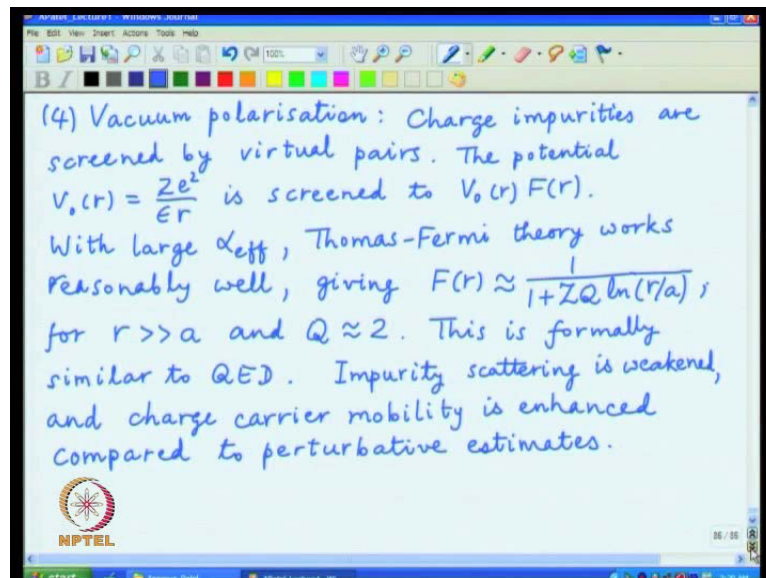 APatel_Lecture1 - Windows Journal
File Edit View Insert Actions Tools Help
100%
B I
(4) Vacuum polarisation: Charge impurities are
screened by virtual pairs. The potential
V₀(r) = Ze²/ϵr is screened to V₀(r) F(r).
With large α_eff, Thomas-Fermi theory works
reasonably well, giving F(r) ≈ 1/(1+ZQ ln(r/a)),
for r>>a and Q ≈ 2. This is formally
similar to QED. Impurity scattering is weakened,
and charge carrier mobility is enhanced
compared to perturbative estimates.
NPTEL
86/86
start